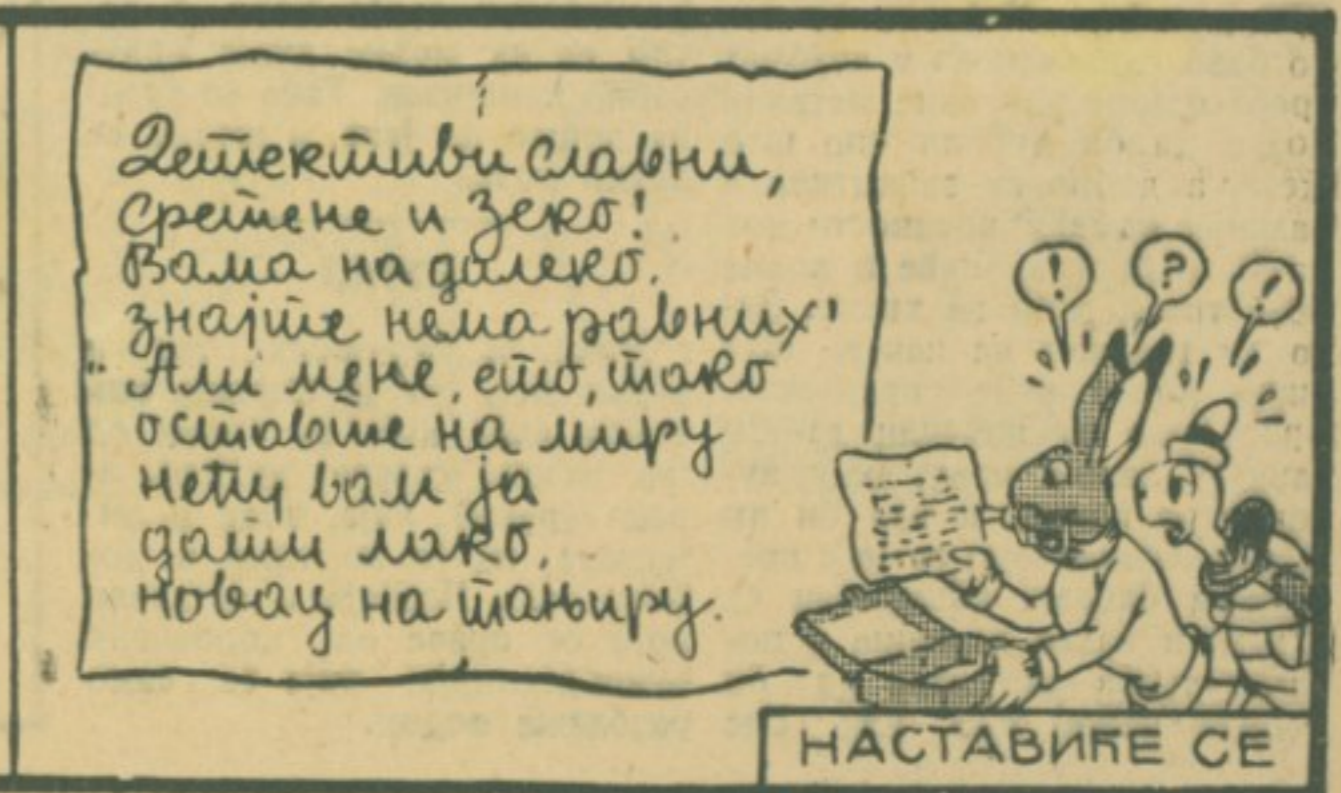 Детективи славни,
Сретене и Зеко!
Вама на далеко.
знајте нема равних!
Али мене, ето, тако
оставте на миру
нећу вам ја
дати лако,
новац на тањиру.
!
?
!
НАСТАВИЋЕ СЕ